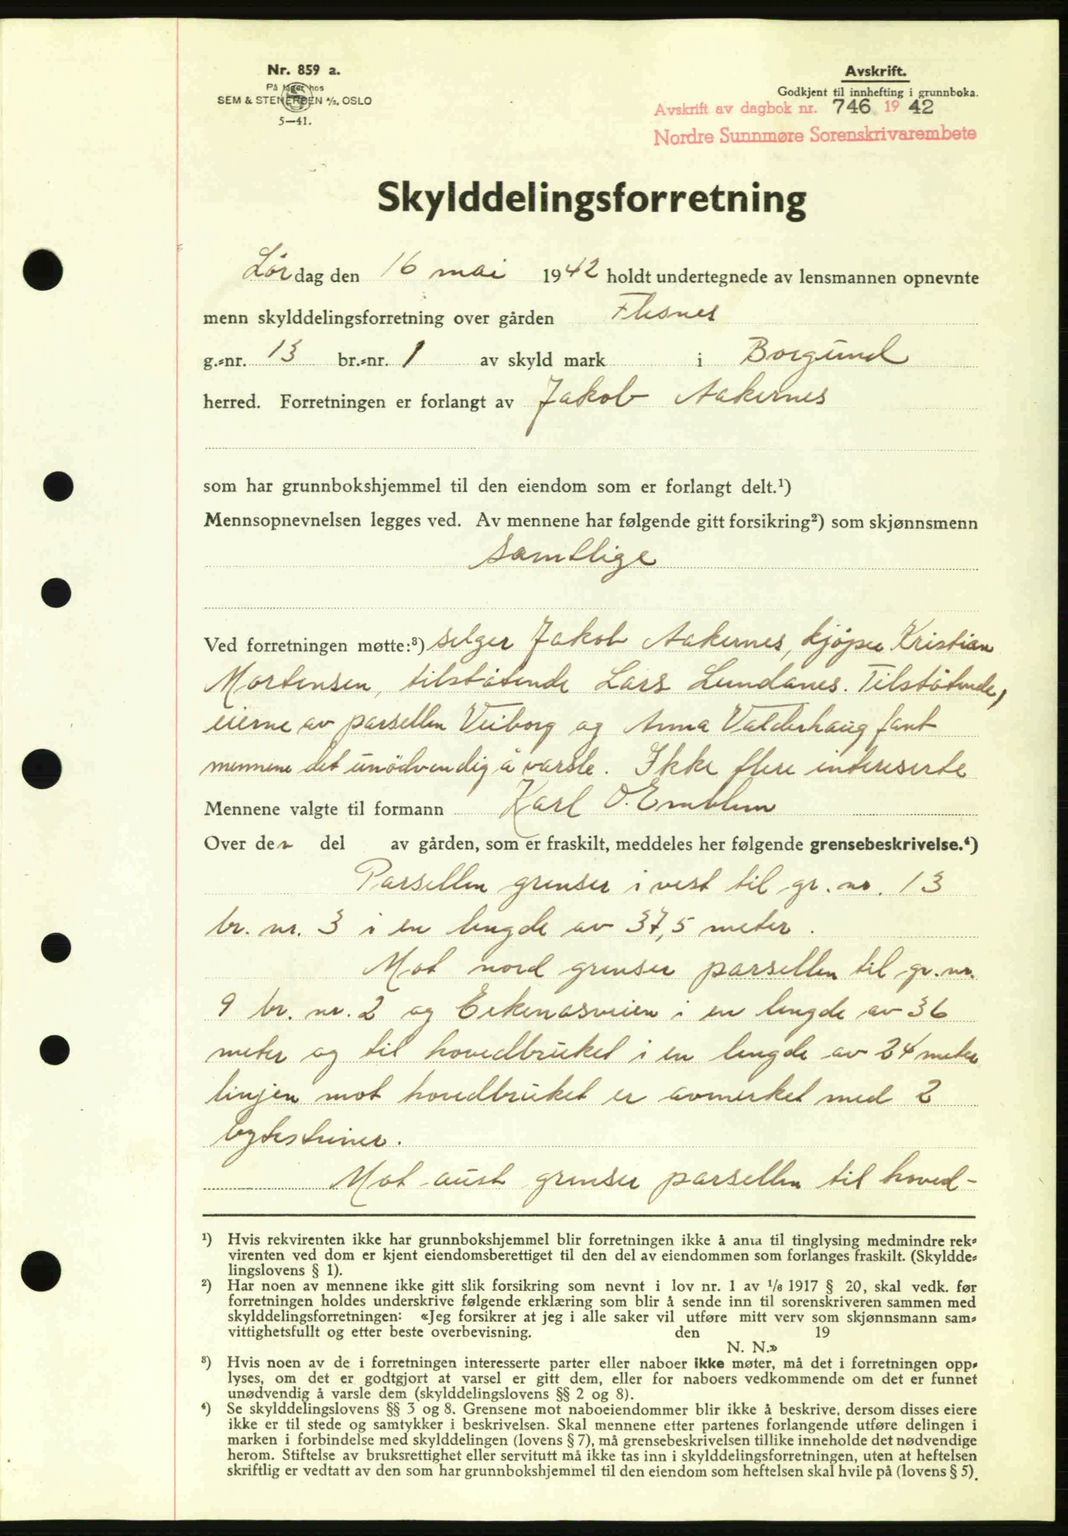 Nr. 859 a.
På lager hos
SEM & STENERSEN A/S, OSLO
5—41.
Avskrift.
Godkjent til innhefting i grunnboka.
Avskrift av dagbok nr. 746 1942
Nordre Sunnmøre Sorenskrivarembete
Skylddelingsforretning
Lørdag den 16 mai 1942 holdt undertegnede av lensmannen opnevnte
menn skylddelingsforretning over gården Flisnes
g.-nr. 13 br.-nr. 1 av skyld mark i Borgund
herred. Forretningen er forlangt av Jakob Aakernes
som har grunnbokshjemmel til den eiendom som er forlangt delt.¹)
Mennsopnevnelsen legges ved. Av mennene har følgende gitt forsikring²) som skjønnsmenn
samtlige
Ved forretningen møtte:³) selger Jakob Aakernes, kjøper Kristian
Mortensen, tilstøtende Lars Lundanes. Tilstøtende,
eierne av parsellen Veiborg og Anna Valderhaug fant
mennene det unødvendig å varsle. Ikke flere intereserte
Mennene valgte til formann Karl O. Emblem
Over den del av gården, som er fraskilt, meddeles her følgende grensebeskrivelse.⁴)
Parsellen grenser i vest til gr. nr. 13
br. nr. 3 i en lengde av 37,5 meter.
Mot nord grenser parsellen til gr. nr.
9 br. nr. 2 og Eikenosveien i en lengde av 36
meter og til hovedbruket i en lengde av 24 meter
linjen mot hovedbruket er avmerket med 2
bytesteiner.
Mot aust grenser parsellen til hoved-
¹) Hvis rekvirenten ikke har grunnbokshjemmel blir forretningen ikke å anta til tinglysing medmindre rek-
virenten ved dom er kjent eiendomsberettiget til den del av eiendommen som forlanges fraskilt. (Skyldde-
lingslovens § 1).
²) Har noen av mennene ikke gitt slik forsikring som nevnt i lov nr. 1 av 1/6 1917 § 20, skal vedk. før
forretningen holdes underskrive følgende erklæring som blir å sende inn til sorenskriveren sammen med
skylddelingsforretningen: «Jeg forsikrer at jeg i alle saker vil utføre mitt verv som skjønnsmann sam-
vittighetsfullt og etter beste overbevisning. den 19
N. N.»
³) Hvis noen av de i forretningen interesserte parter eller naboer ikke møter, må det i forretningen opp-
lyses, om det er godtgjort at varsel er gitt dem, eller for naboers vedkommende om det er funnet
unødvendig å varsle dem (skylddelingslovens §§ 2 og 8).
⁴) Se skylddelingslovens §§ 3 og 8. Grensene mot naboeiendommer blir ikke å beskrive, dersom disses eiere
ikke er til stede og samtykker i beskrivelsen. Skal mennene etter partenes forlangende utføre delingen i
marken i forbindelse med skylddelingen (lovens § 7), må grensebeskrivelsen tillike inneholde det nødvendige
herom. Stiftelse av bruksrettighet eller servitutt må ikke tas inn i skylddelingsforretningen, uten at heftelsen
skriftlig er vedtatt av den som har grunnbokshjemmel til den eiendom som heftelsen skal hvile på (lovens § 5).